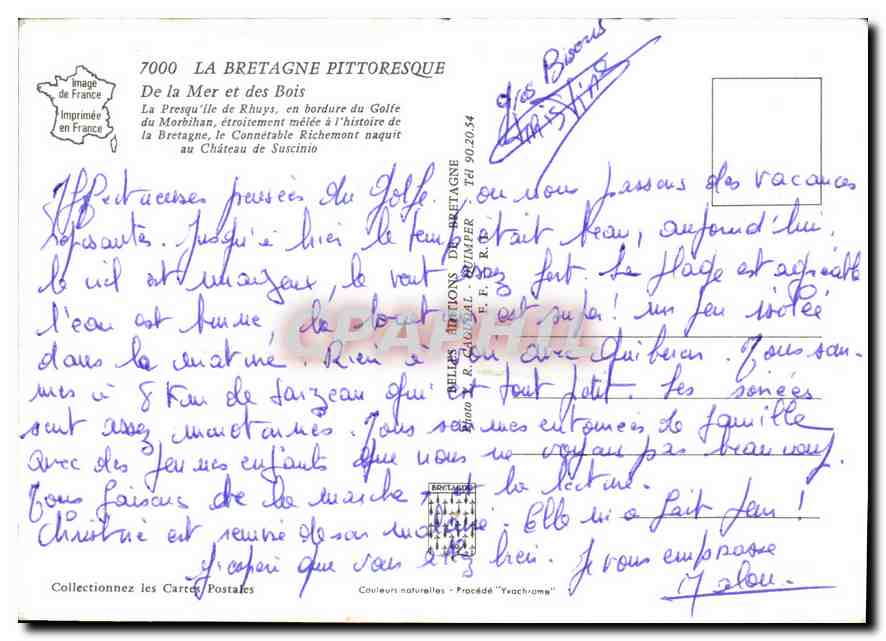 Image
de France
Imprimée
en France
7000 LA BRETAGNE PITTORESQUE
De la Mer et des Bois
La Presqu'île de Rhuys, en bordure du Golfe
du Morbihan, étroitement mêlée à l'histoire de
la Bretagne, le Connétable Richemont naquit
au Château de Suscinio
gros Bisous
Christine
Affectueuses pensées du Golfe, où nous passons des vacances
reposantes. Jusqu'à hier le temps était beau, aujourd'hui,
le ciel est nuageux, le vent assez fort. La plage est agréable
l'eau est bonne, la location est super! un peu isolée
dans la nature. Rien à voir avec Quiberon. Nous som-
mes à 8 Km de Sarzeau qui est tout petit. Les soirées
sont assez monotones. Nous sommes entourées de famille
avec des jeunes enfants que nous ne voyons pas beaucoup.
Nous faisons de la marche, et de la lecture.
Christine est remise de son malaise. Elle m'a fait peur!
J'espère que vous allez bien. Je vous embrasse
Malou
BELLES EDITIONS DE BRETAGNE
Photo R. CAOUDAL - QUIMPER Tél 90.20.54
BRETAGNE
CPAPHIL
Collectionnez les Cartes Postales
Couleurs naturelles - Procédé "Yvachrome"